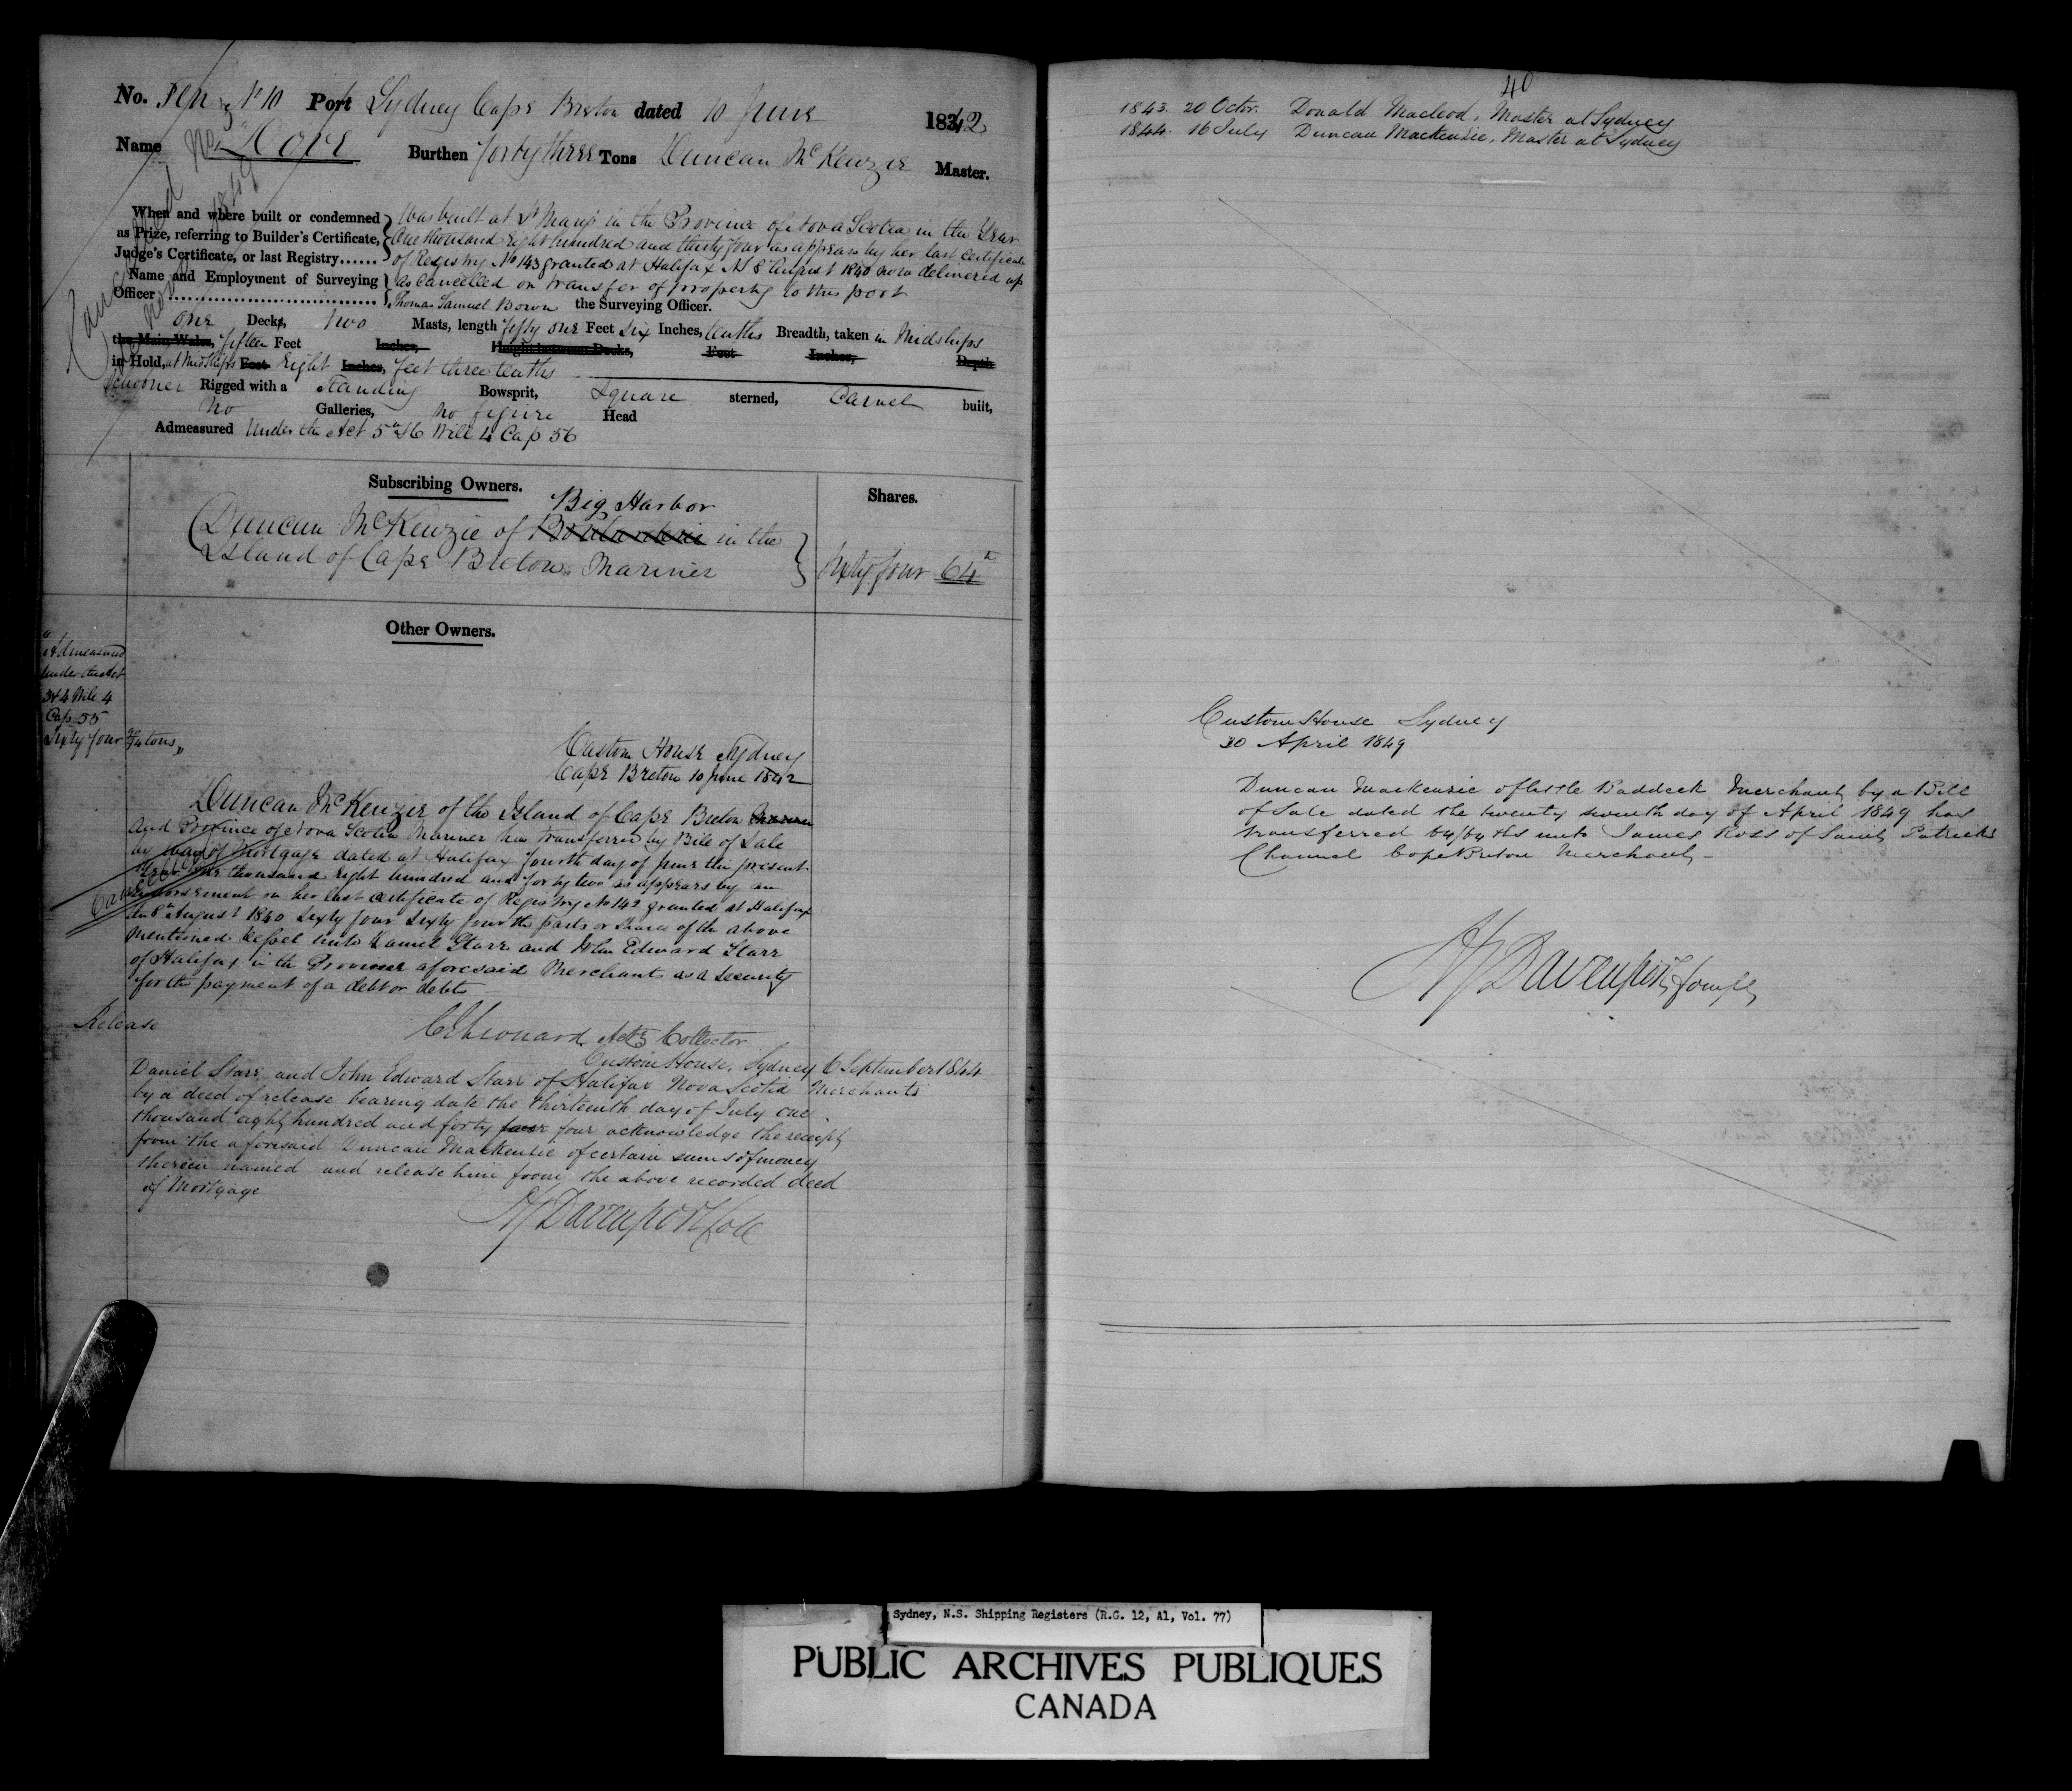 No. Ten N° 10 Port Sydney Cape Breton dated 10 June 1842
Name "Dove Burthen forty three Tons Duncan McKenzie Master.
When and where built or condemned
as Prize, referring to Builder's Certificate,
Judge's Certificate, or last Registry......
Was built at St Marys in the Province of Nova Scotia in the Year
One thousand Eight hundred and thirty four as appears by her last Certificate
of Registry No 143 granted at Halifax NS 8th August 1840 now delivered up
Name and Employment of Surveying
Officer
as Cancelled on transfer of property to this port
Thomas Samuel Bown the Surveying Officer.
One Deck, two Masts, length fifty one Feet six Inches, tenths Breadth, taken in Midships
the Main Wales, fifteen Feet Inches, Height between Decks, Feet Inches, Depth
in Hold, at Midships Feet Eight Inches, feet three tenths
Schooner Rigged with a Standing Bowsprit, Square sterned, Carvel built,
No Galleries, No figure Head
Admeasured Under the Act 5 & 6 Will 4 Cap 56
Cancelled
Subscribing Owners.
Shares.
Big Harbor
Duncan McKenzie of Boularderie in the
Island of Cape Breton Mariner
Sixty four 64
Other Owners.
"Admeasured
under the Act
3 & 4 Will 4
Cap 55
Sixty four tons"
Custom House Sydney
Cape Breton 10 June 1842
Duncan McKenzie of the Island of Cape Breton Mariner
and Province of Nova Scotia Mariner has transferred by Bill of Sale
by way of Mortgage dated at Halifax fourth day of June the present
Year One thousand eight hundred and forty two as appears by an
Endorsement on her last Certificate of Registry No 142 granted at Halifax
8th August 1840 Sixty four Sixty fourth parts or shares of the above
mentioned Vessel unto Daniel Starr and John Edward Starr
of Halifax in the Province aforesaid Merchants as a security
for the payment of a debt or debts
Cancelled
C E Leonard Actg Collector
Release
Custom House, Sydney 6 September 1844
Daniel Starr and John Edward Starr of Halifax Nova Scotia Merchants
by a deed of release bearing date the thirteenth day of July one
thousand eight hundred and forty four four acknowledge the receipt
from the aforesaid Duncan Mackenzie of certain sums of money
therein named and release him from the above recorded deed
of Mortgage
Davenport Coll
40
1843. 20 Octor. Donald Macleod, Master at Sydney
1844. 16 July Duncan Mackenzie, Master at Sydney
Custom House Sydney
30 April 1849
Duncan Mackenzie of little Baddeck Merchant by a Bill
of Sale dated the twenty seventh day of April 1849 has
transferred 64/64ths unto James Ross of Saint Patricks
Channel Cape Breton Merchant -
Davenport Compt
Sydney, N.S. Shipping Registers (R.G. 12, A1, Vol. 77)
PUBLIC ARCHIVES PUBLIQUES
CANADA